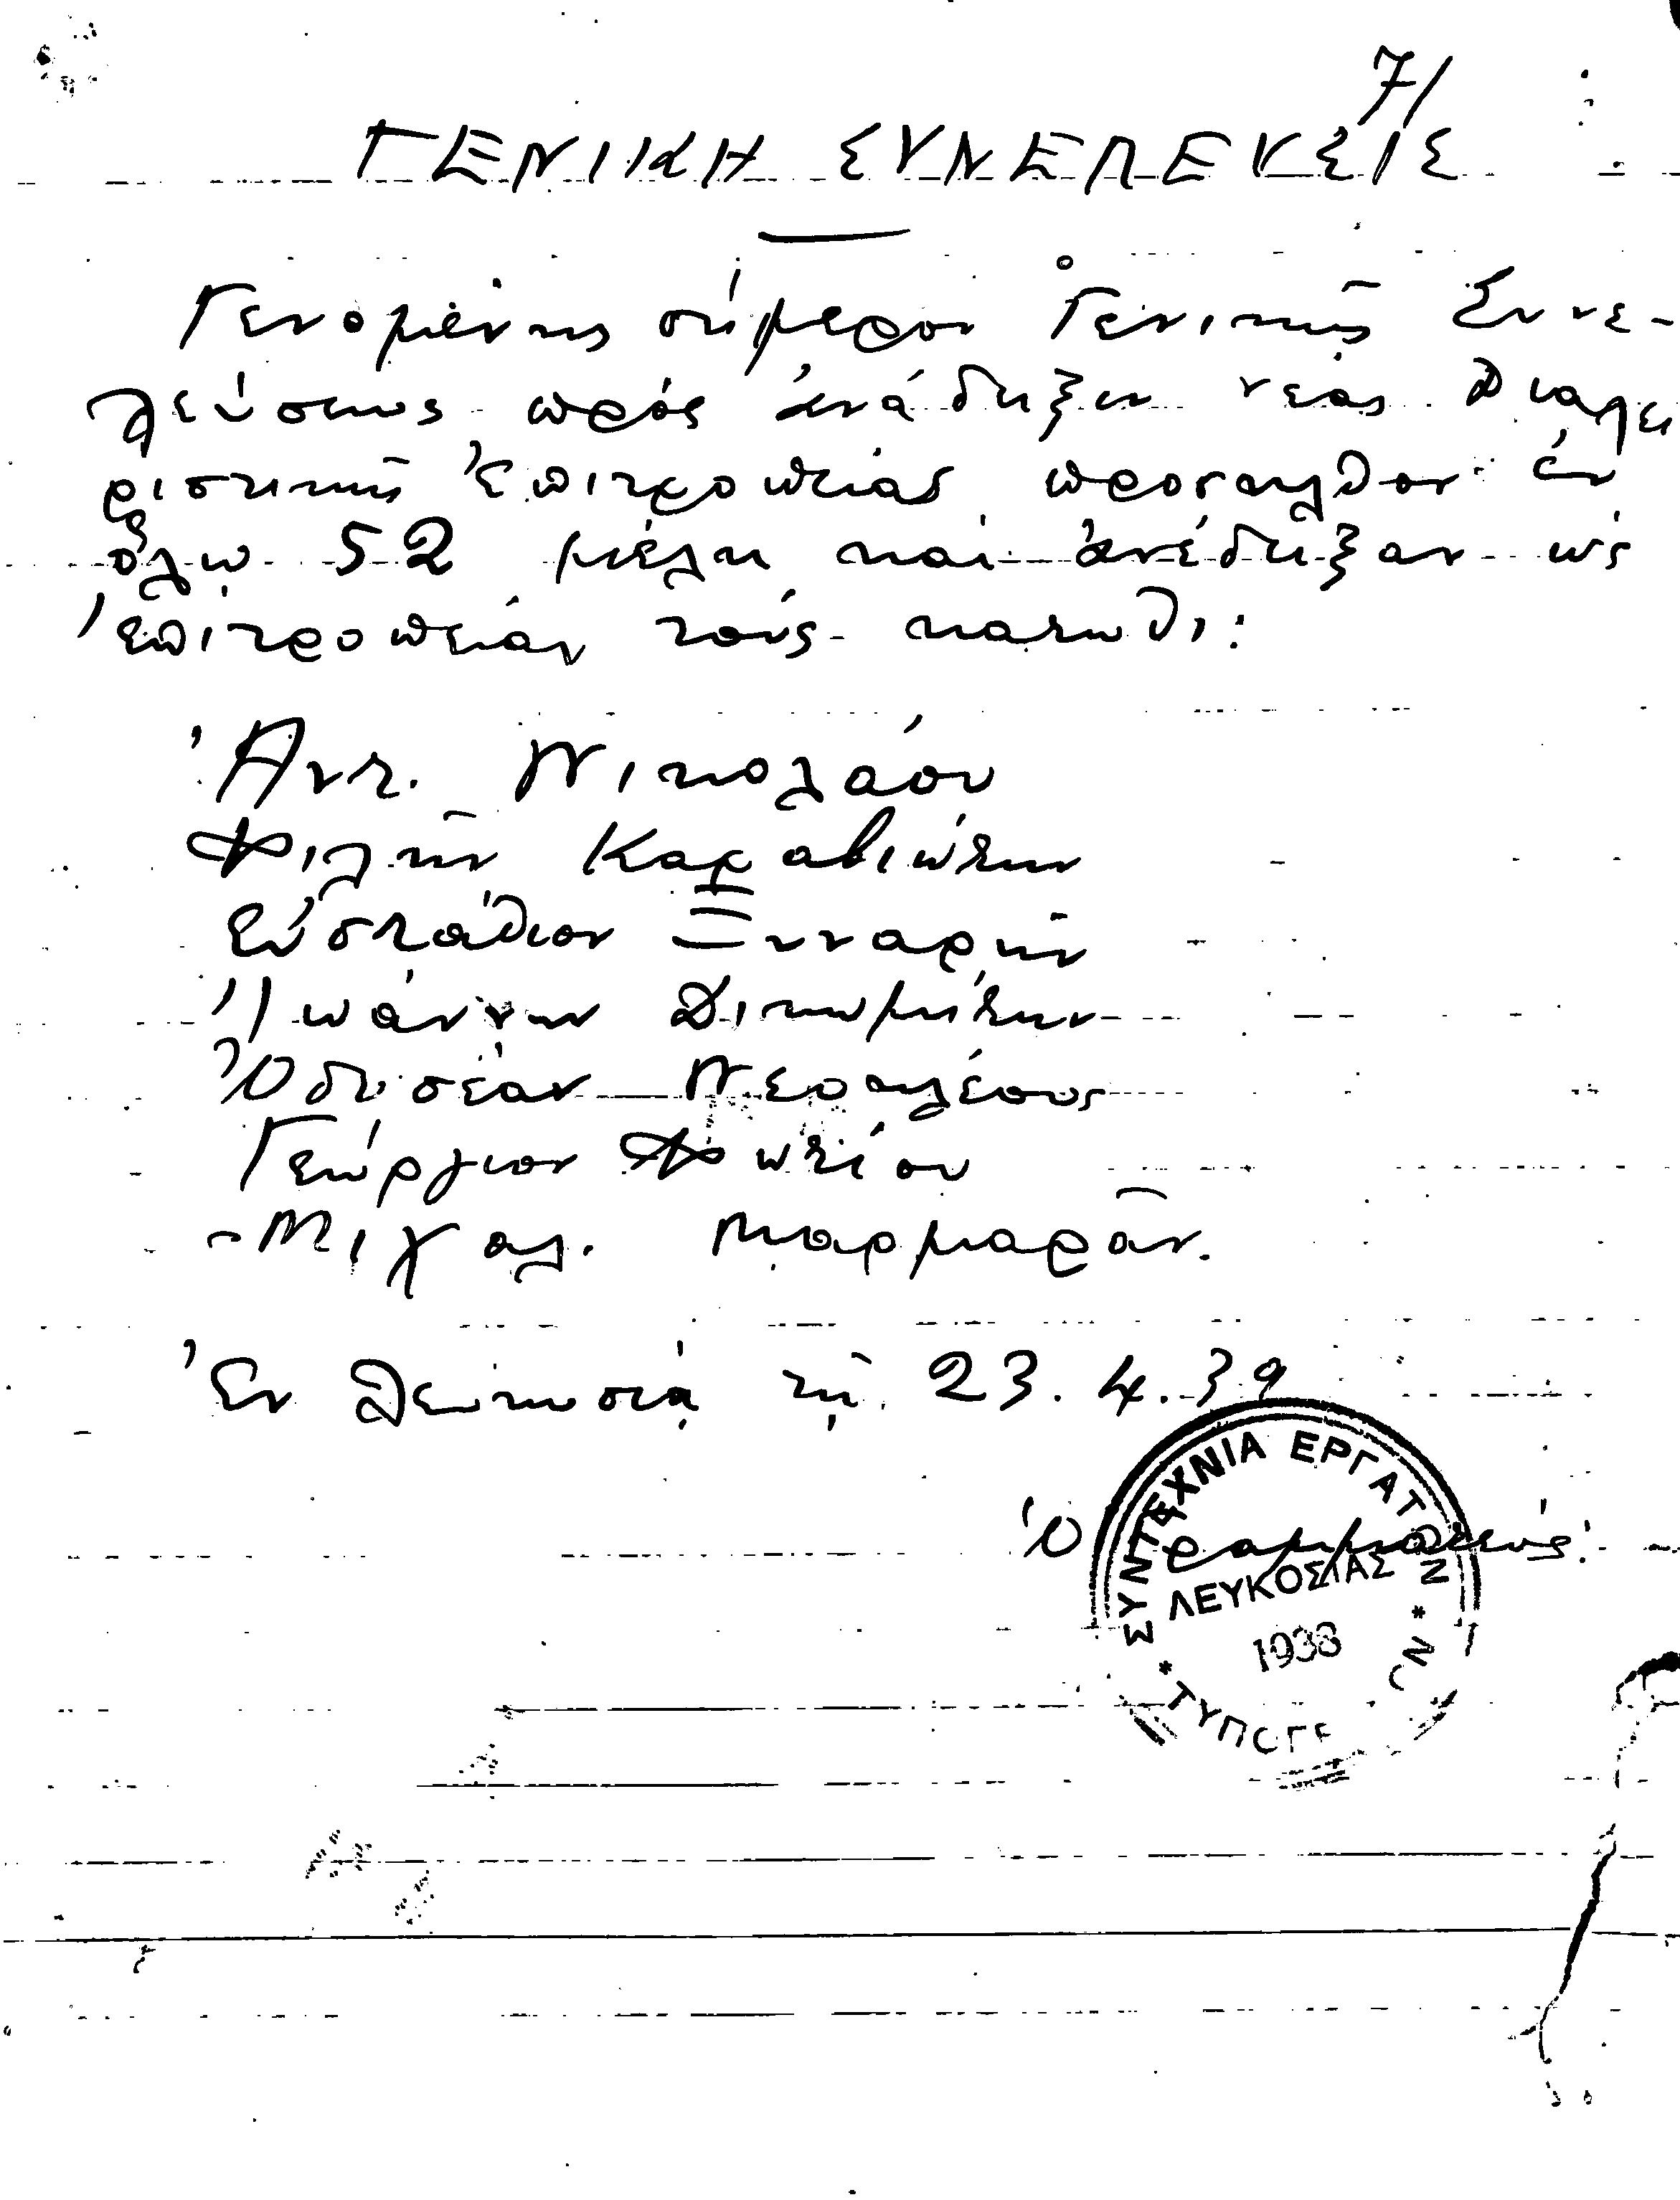 7/
ΓΕΝΙΚΗ ΣΥΝΕΛΕΥΣΙΣ
Γενομένης σήμερον Γενικῆς Συνε-
λεύσεως πρός ἀνάδειξιν νέας Διαχει
ριστικῆς Ἐπιτροπείας προσῆλθον ἐν
ὅλῳ 52 μέλη καί ἀνέδειξαν ὡς
Ἐπιτροπείαν τούς κατωθι:
Ἀντ. Νικολάου
Φιλῆν Καραβιώτην
Εὐστάθιον Ξυναρῆν
Ἰωάννην Δικωμίτην
Ὀδυσέαν Νεοκλέους
Γεώργιον Φωτίου
Μιχαλ. Μαρμαρᾶν.
Ἐν Λευκωσίᾳ τῇ 23.4.39
Ὁ Γραμματεύς:
ΣΥΝΤΕΧΝΙΑ ΕΡΓΑΤΩΝ
ΛΕΥΚΟΣΙΑΣ
1938